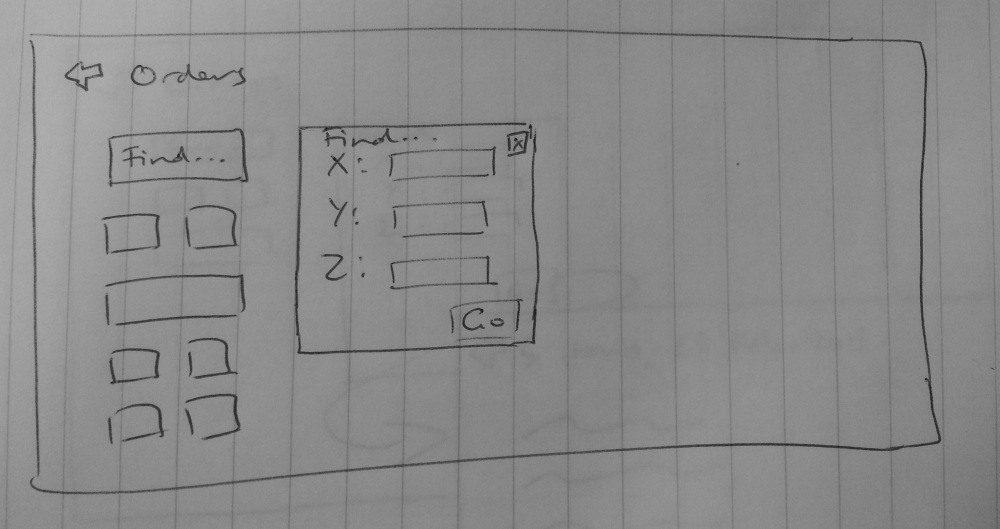 Orders
Find...
Find...
X
X:
Y:
Z:
Go